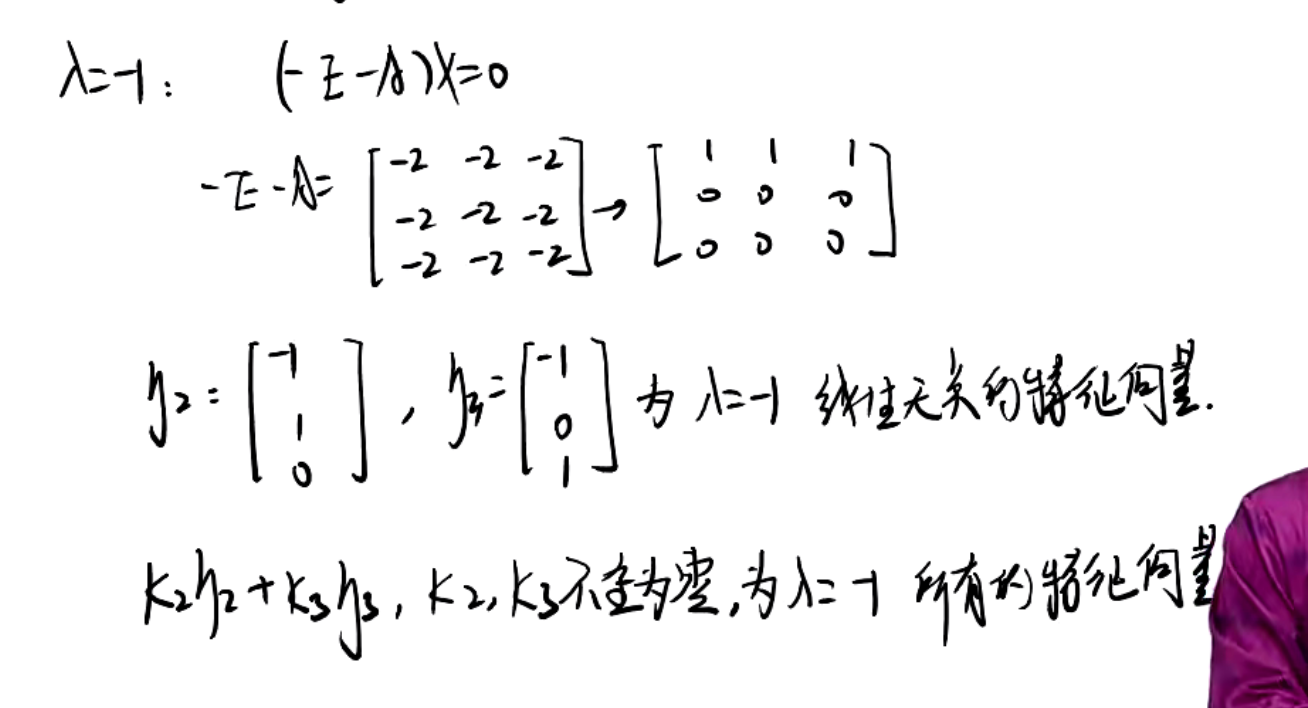 λ=-1: (-E-A)X=0
-E-A= [-2 -2 -2; -2 -2 -2; -2 -2 -2] → [1 1 1; 0 0 0; 0 0 0]
η₂= [-1; 1; 0], η₃= [-1; 0; 1] 为 λ=-1 线性无关的特征向量.
k₂η₂+k₃η₃, k₂,k₃不全为零,为λ=-1 所有的特征向量